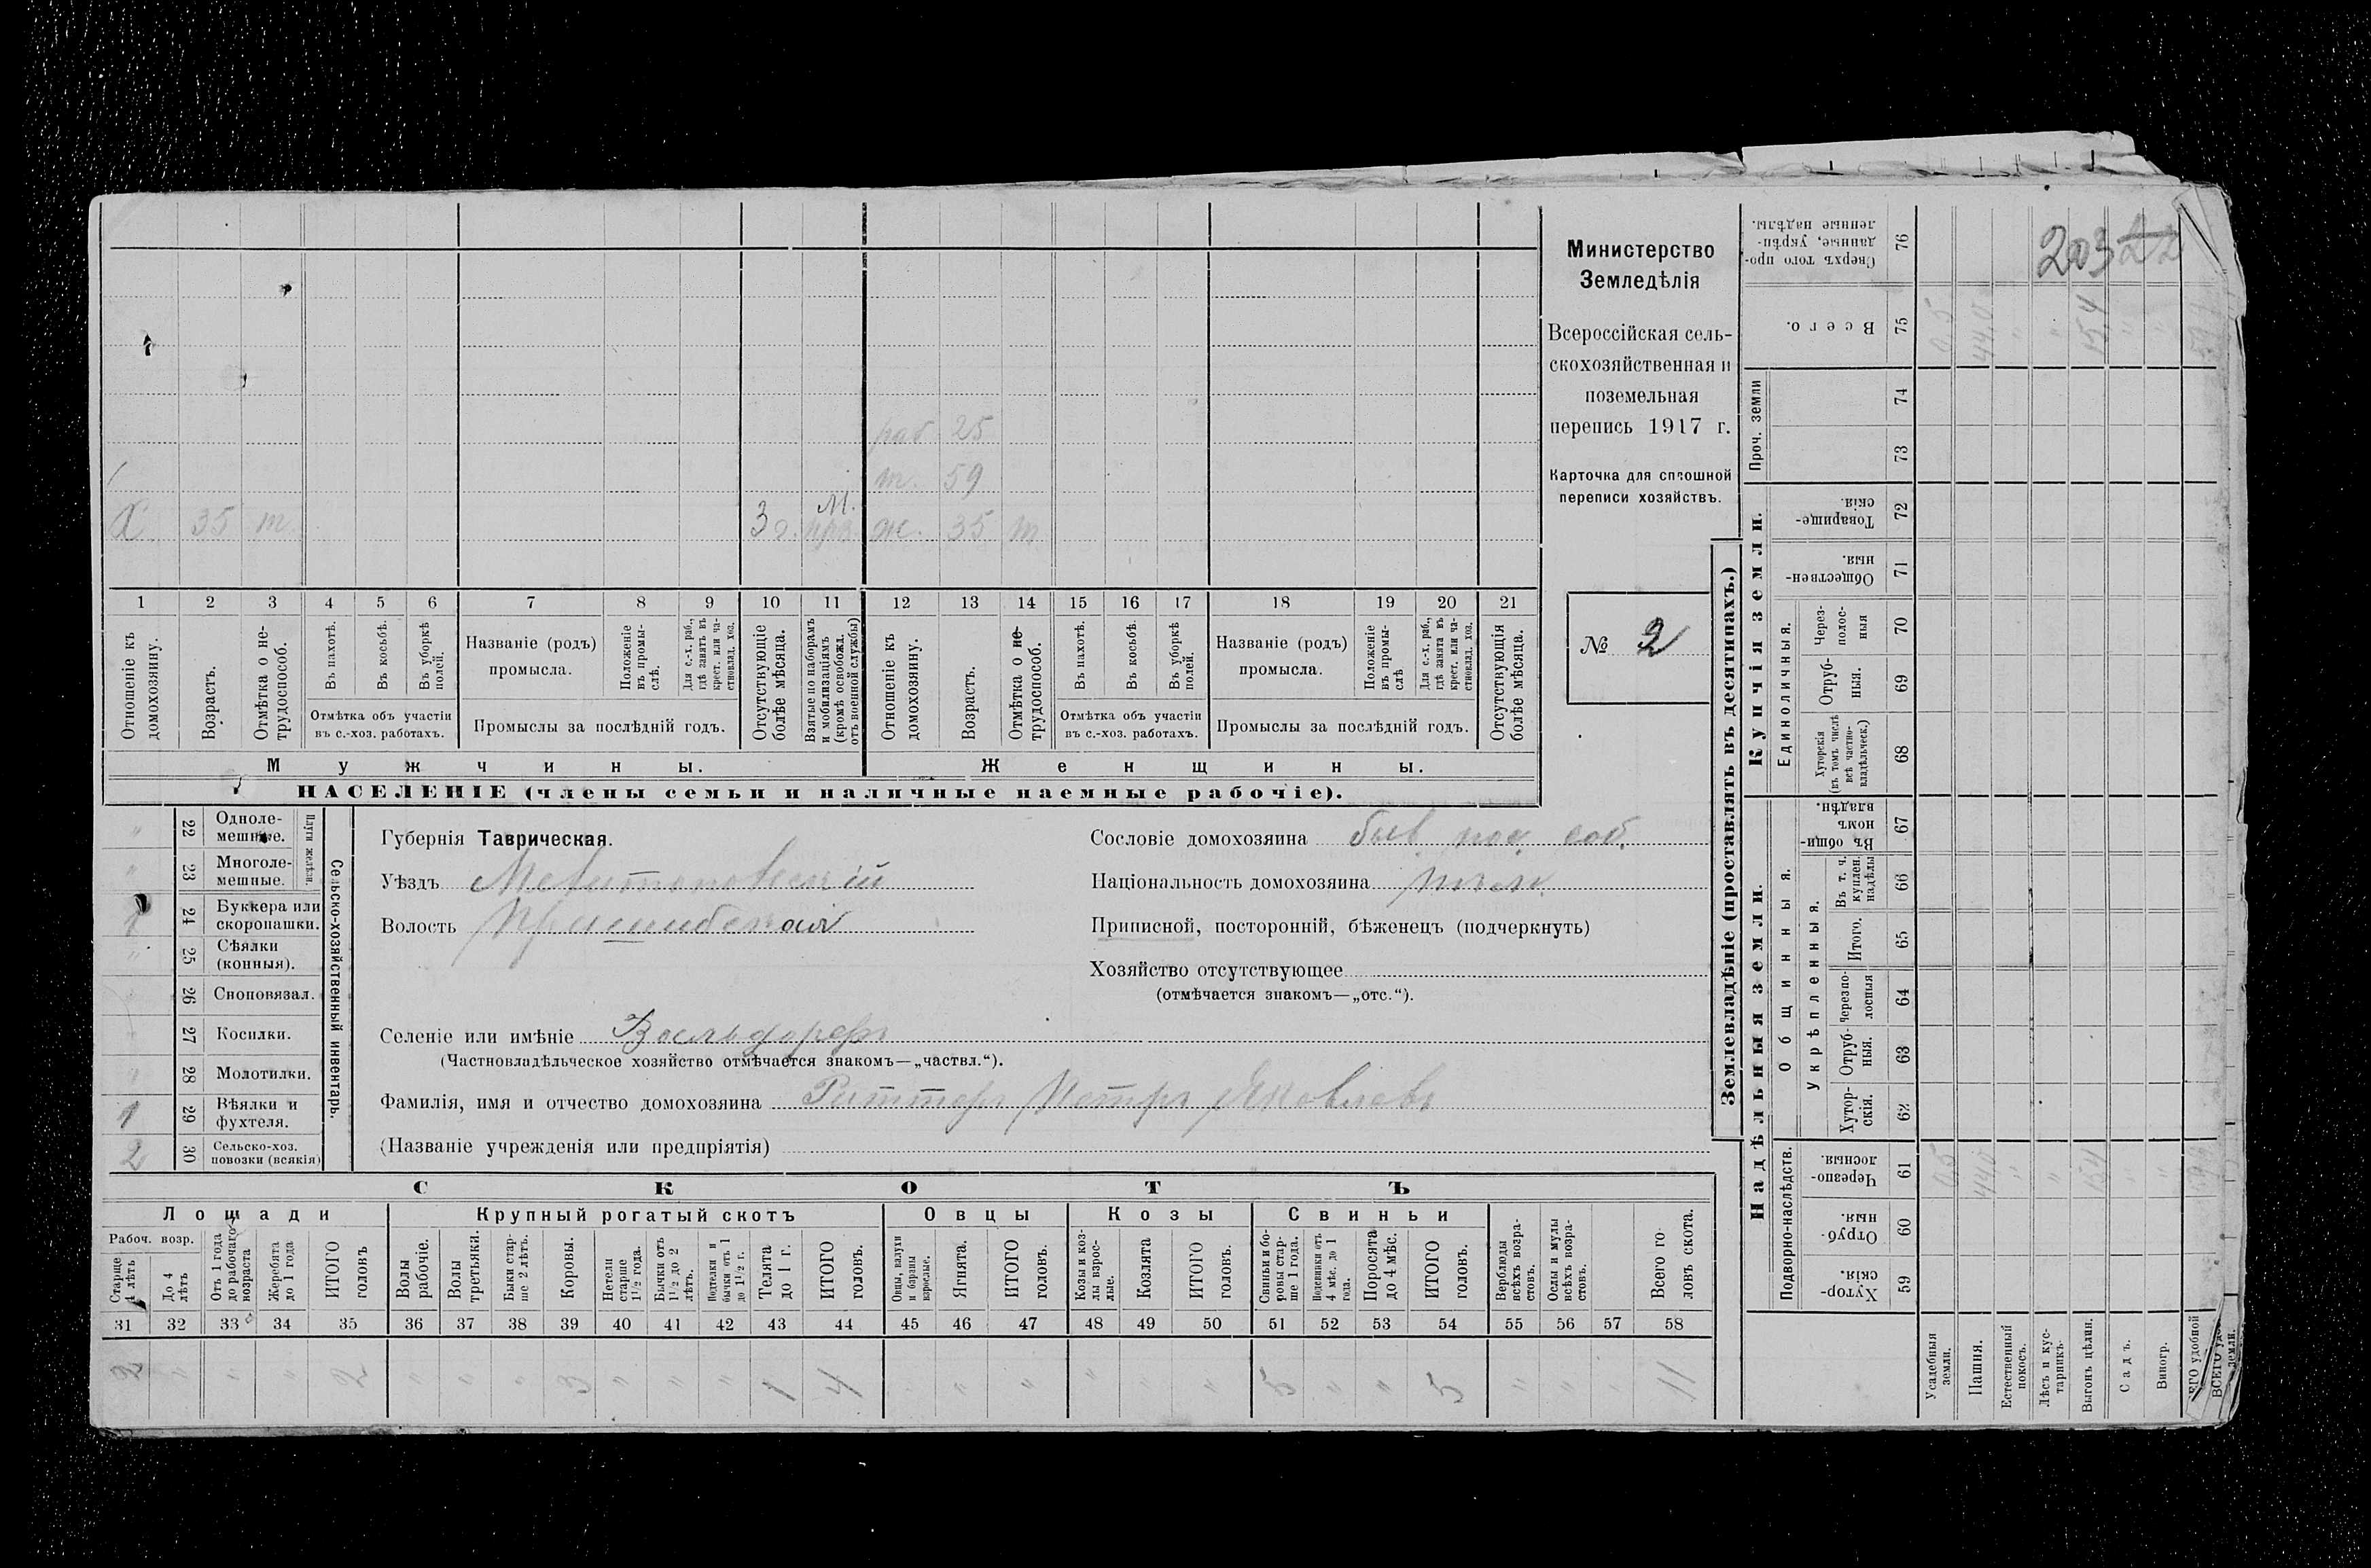 раб. 25
т. 59
Х 35 т. 3 г. М. прз. ж. 35 т
1 2 3 4 5 6 7 8 9 10 11 12 13 14 15 16 17 18 19 20 21
Отношеніе къ домохозяину.
Возрастъ.
Отмѣтка о не-трудоспособ.
Въ пахотѣ.
Въ косьбѣ.
Въ уборкѣ полей.
Отмѣтка объ участіи
въ с.-хоз. работахъ.
Названіе (родъ)
промысла.
Положеніе въ промы-слѣ.
Для с.-х. раб., гдѣ занятъ въ крест. или ча-стновлад. хоз.
Промыслы за послѣдній годъ.
Отсутствующіе болѣе мѣсяца.
Взятые по наборамъ и мобилизаціямъ (кромѣ освобожд. отъ военной службы)
Отношеніе къ домохозяину.
Возрастъ.
Отмѣтка о не-трудоспособ.
Въ пахотѣ.
Въ косьбѣ.
Въ уборкѣ полей.
Отмѣтка объ участіи
въ с.-хоз. работахъ.
Названіе (родъ)
промысла.
Положеніе въ промы-слѣ
Для с.-х. раб., гдѣ занята въ крест. или ча-стновлад. хоз.
Промыслы за послѣдній годъ.
Отсутствующія болѣе мѣсяца.
Мужчины. Женщины.
НАСЕЛЕНІЕ (члены семьи и наличные наемные рабочіе).
Министерство
Земледѣлія
Всероссійская сель-
скохозяйственная и
поземельная
перепись 1917 г.
Карточка для сплошной
переписи хозяйствъ.
№ 2
Сельско-хозяйственный инвентарь.
Плуги желѣзн.
" 22 Одноле-мешные.
" 23 Многоле-мешные.
1 24 Буккера или скоропашки.
" 25 Сѣялки (конныя).
26 Сноповязал.
" 27 Косилки.
" 28 Молотилки.
1 29 Вѣялки и фухтеля.
2 30 Сельско-хоз. повозки (всякія)
Губернія Таврическая.
Уѣздъ Мелитопольскій
Волость Пришибская
Сословіе домохозяина быв. пос. соб.
Національность домохозяина нѣм.
Приписной, посторонній, бѣженецъ (подчеркнуть)
Хозяйство отсутствующее
(отмѣчается знакомъ—„отс.“).
Селеніе или имѣніе Вальдорфъ
(Частновладѣльческое хозяйство отмѣчается знакомъ—„частвл.“).
Фамилія, имя и отчество домохозяина Риттеръ Петръ Яковлевъ
(Названіе учрежденія или предпріятія)
СКОТЪ
Лошади Крупный рогатый скотъ Овцы Козы Свиньи
Рабоч. возр.
Старше 4 лѣтъ
До 4 лѣтъ
Отъ 1 года до рабочаго возраста
Жеребята до 1 года
ИТОГО головъ
Волы рабочіе.
Волы третьяки.
Быки стар-ше 2 лѣтъ.
Коровы.
Нетели старше 1½ года.
Бычки отъ 1½ до 2 лѣтъ.
Подтелки и бычки отъ 1 до 1½ г.
Телята до 1 г.
ИТОГО головъ.
Овцы, валухи и бараны взрослые.
Ягнята.
ИТОГО головъ.
Козы и коз-лы взрос-лые.
Козлята
ИТОГО головъ.
Свиньи и бо-ровы стар-ше 1 года.
Подсвинки отъ 4 мѣс. до 1 года.
Поросята до 4 мѣс.
ИТОГО головъ.
Верблюды всѣхъ возра-стовъ.
Ослы и мулы всѣхъ возра-стовъ.
Всего го-ловъ скота.
31 32 33 34 35 36 37 38 39 40 41 42 43 44 45 46 47 48 49 50 51 52 53 54 55 56 57 58
2 " " " 2 " " " 3 " " " 1 4 " " " " " " 5 " " 5 " " " 11
Землевладѣніе (проставлять въ десятинахъ.)
Сверхъ того про-данные, укрѣп-ленные надѣлы. 76
203
Всего. 75 0,5 44,0 " " 15,4 " "
Проч. земли 74
73
Купчія земли.
Товарище-скія. 72
Обществен-ныя. 71
Единоличныя.
Через-полос-ныя 70
Отруб-ныя. 69
Хуторскія (въ томъ числѣ всѣ частно-владѣльческ.) 68
Надѣльныя земли.
Общинныя.
Въ общи-номъ владѣн. 67
Укрѣпленныя.
Въ т. ч. куплен. надѣлы 66
Итого. 65
Черезпо-лосныя 64
Отруб-ныя. 63
Хутор-скія. 62
Подворно-наслѣдств.
Черезпо-лосныя. 61 0,5 44,0 " " 15,4 " "
Отруб-ныя. 60
Хутор-скія. 59
Усадебныя земли.
Пашня.
Естественный покосъ.
Лѣсъ и кус-тарникъ.
Выгонъ цѣлин.
Садъ.
Виногр.